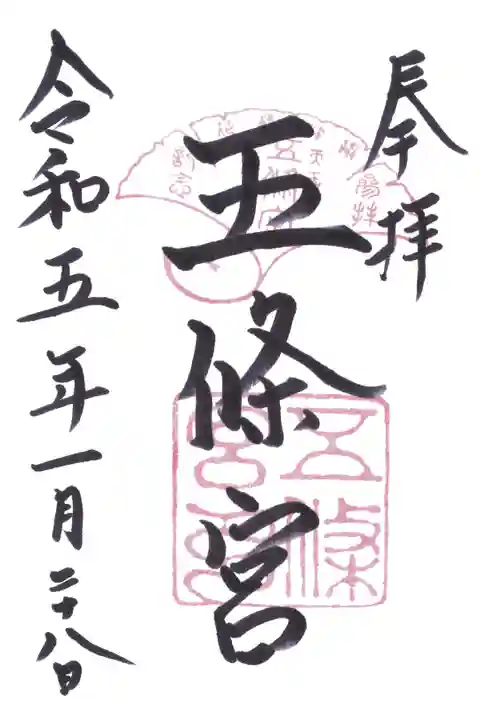 奉拝
五條宮
令和五年一月二十八日
五條
宮